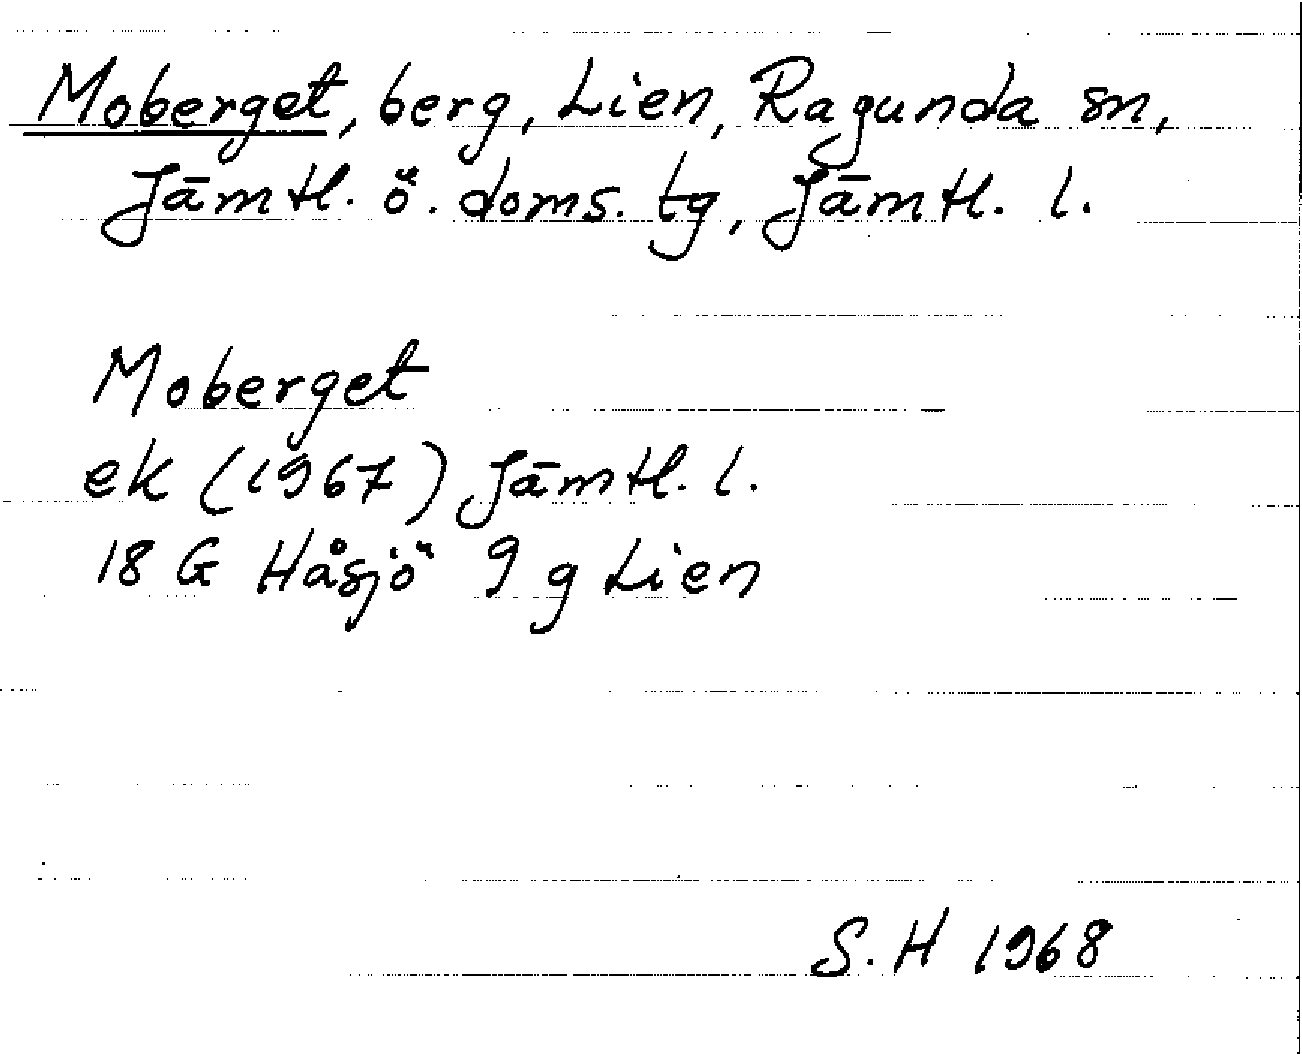 Moberget, berg, Lien, Ragunda sn,
Jämtl. ö. doms. tg, Jämtl. l.
Moberget
ek (1967) Jämtl. l.
18 G Håsjö 9 g Lien
S. H 1968